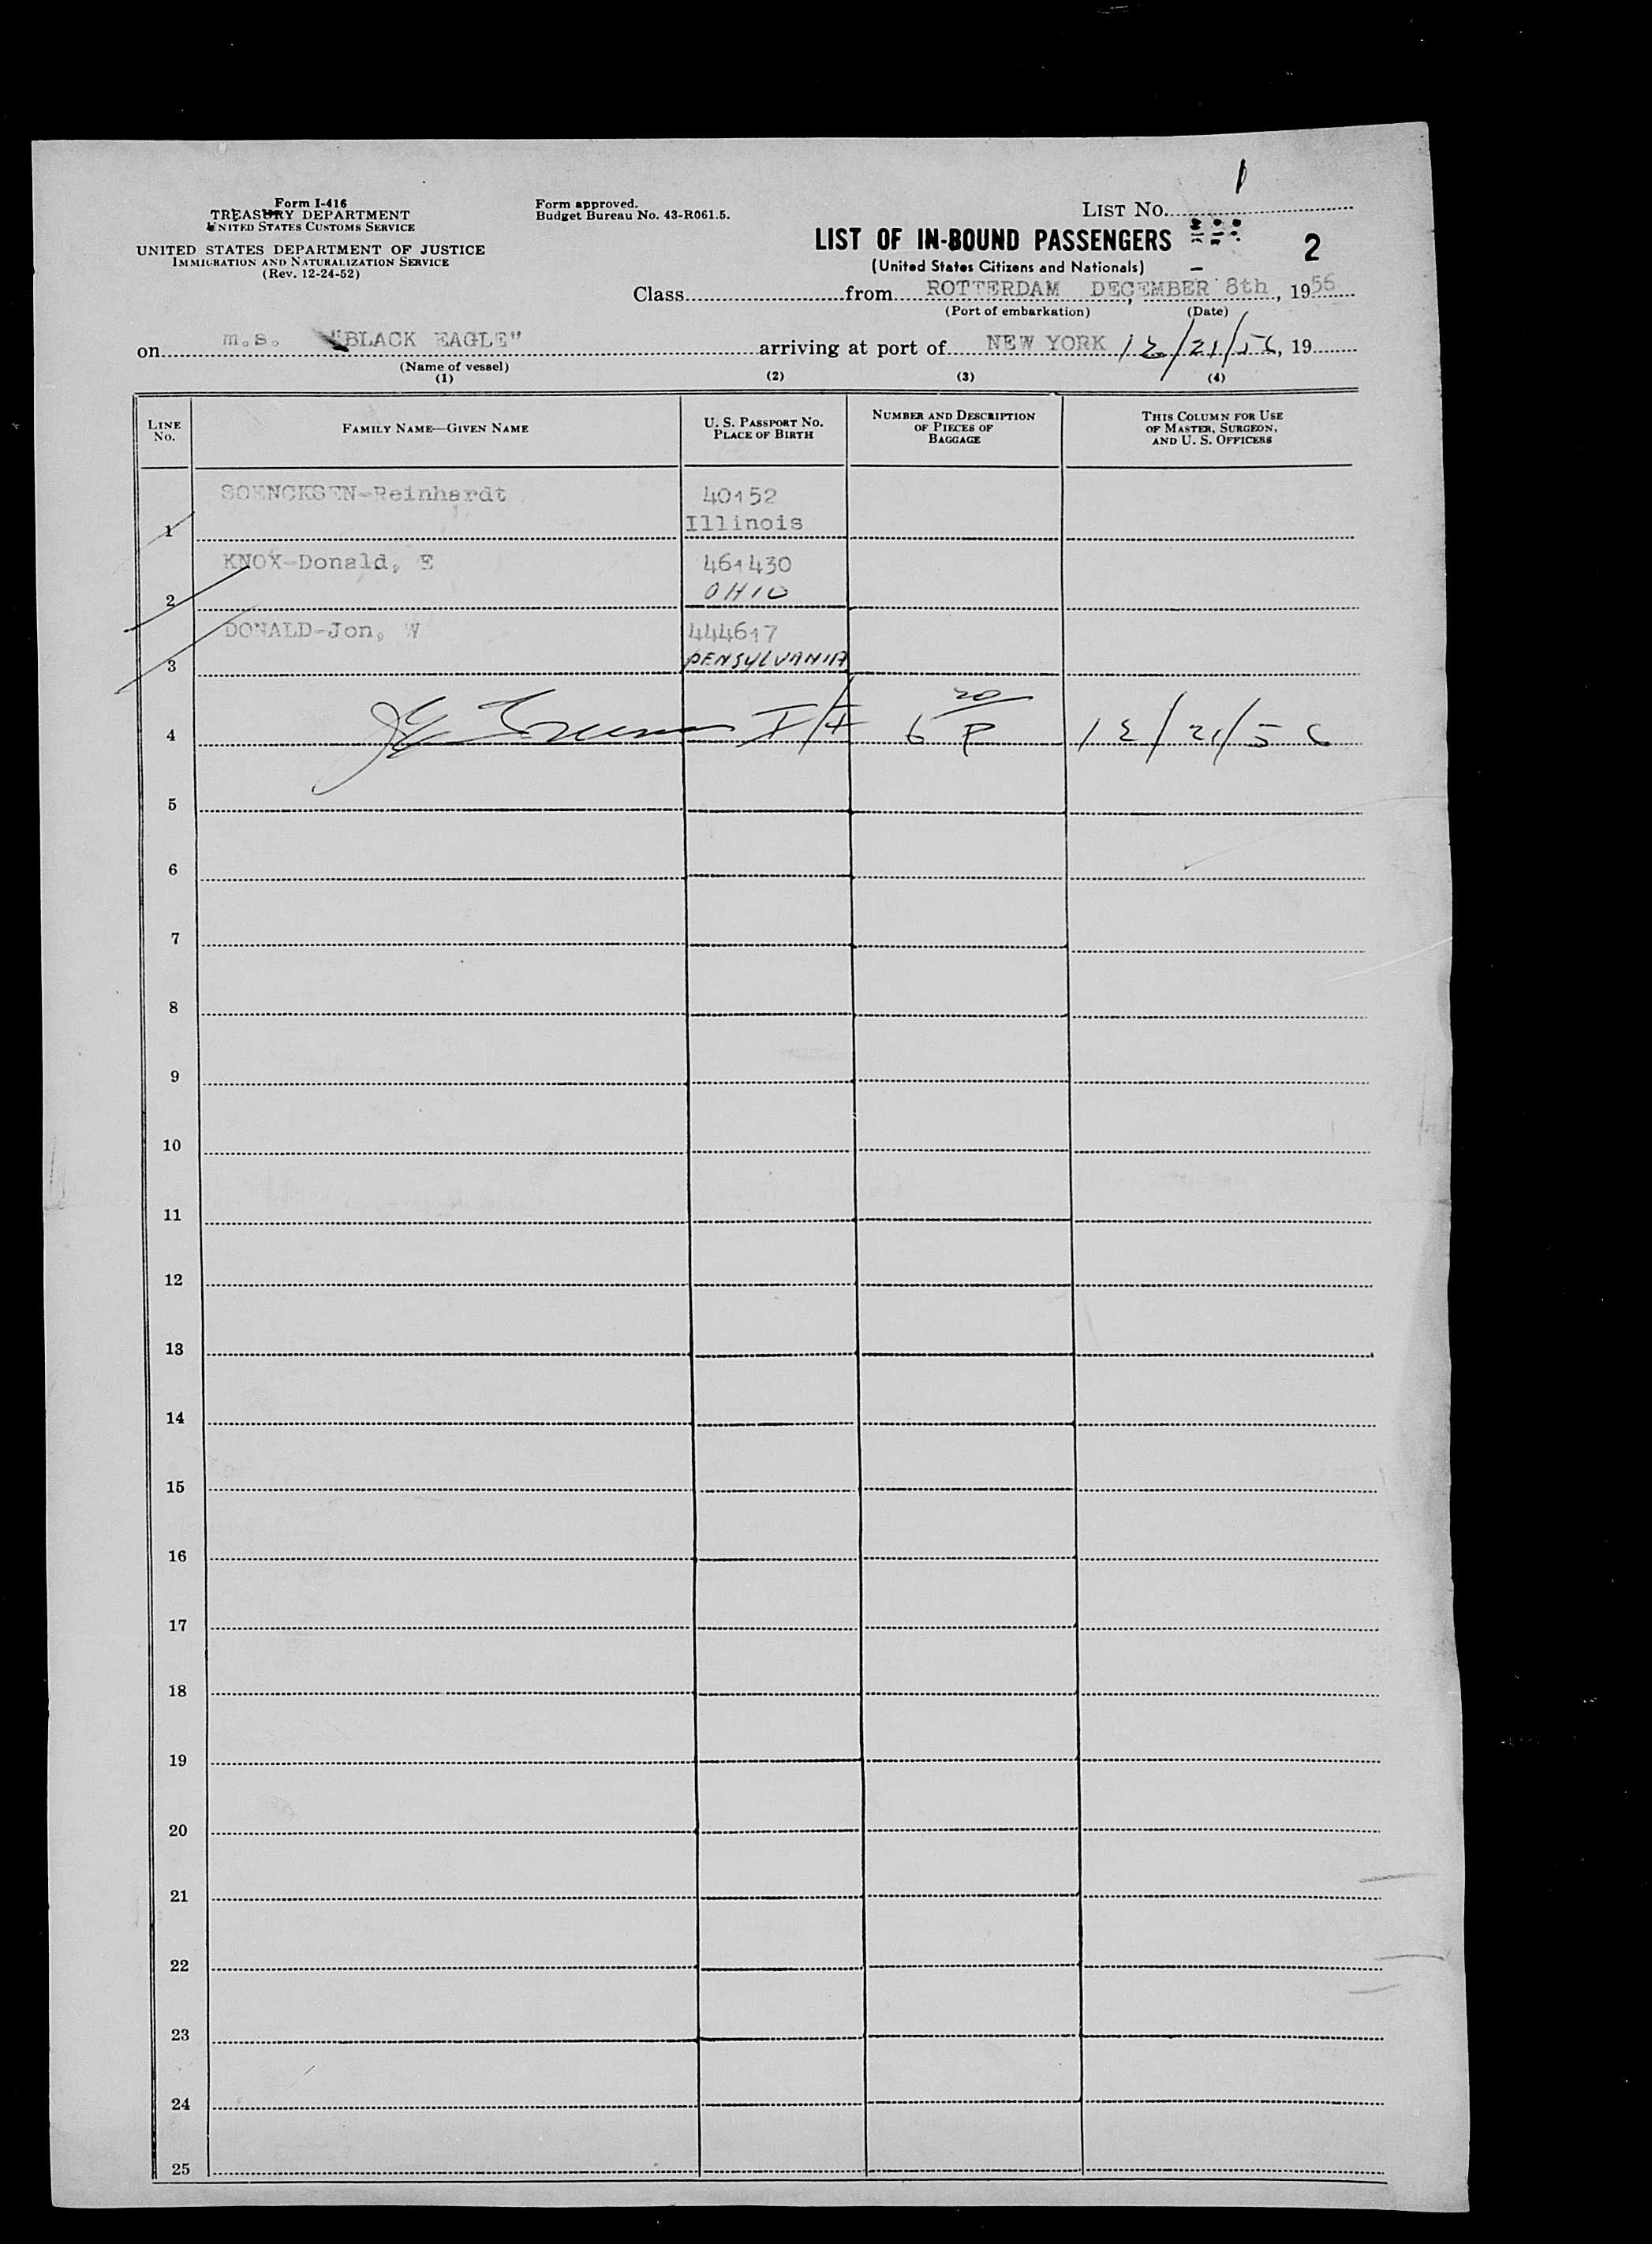 Form I-416
TREASURY DEPARTMENT
UNITED STATES CUSTOMS SERVICE
UNITED STATES DEPARTMENT OF JUSTICE
IMMIGRATION AND NATURALIZATION SERVICE
(Rev. 12-24-52)
Form approved.
Budget Bureau No. 43-R061.5.
LIST No. 1
LIST OF IN-BOUND PASSENGERS
2
(United States Citizens and Nationals)
Class from ROTTERDAM DECEMBER 8th, 1956
(Port of embarkation) (Date)
on m.s. "BLACK EAGLE" arriving at port of NEW YORK 12/21/56, 19
(Name of vessel)
(1) (2) (3) (4)
LINE No. FAMILY NAME—GIVEN NAME U. S. PASSPORT No. PLACE OF BIRTH NUMBER AND DESCRIPTION OF PIECES OF BAGGAGE THIS COLUMN FOR USE OF MASTER, SURGEON, AND U. S. OFFICERS
SOENCKSEN-Reinhardt 40152
1 Illinois
KNOX-Donald, E 461430
2 OHIO
DONALD-Jon, W 444617
3 PENSYLVANIA
4 6 20/P 12/21/56
5
6
7
8
9
10
11
12
13
14
15
16
17
18
19
20
21
22
23
24
25